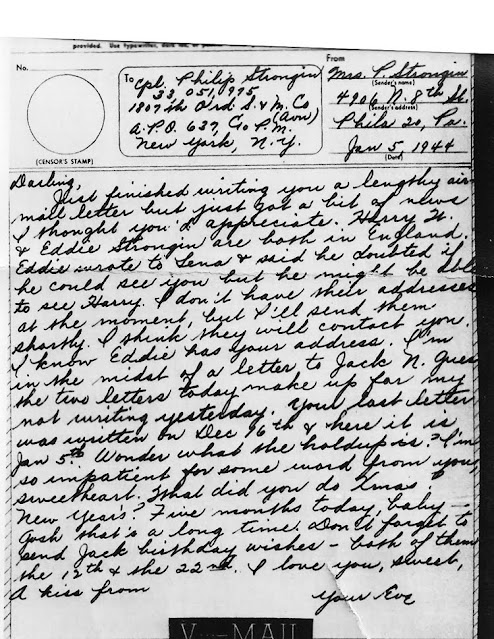 provided. Use typewriter, dark ink, or
No.
(CENSOR'S STAMP)
To Cpl. Philip Strongin
33,051,975
1807th Ord. S. & M. Co
(Avn)
A.P.O. 637, C/o P.M.
New York, N.Y.
From
Mrs. P. Strongin
(Sender's name)
4906 N. 8th St.
(Sender's address)
Phila 20, Pa.
Jan 5, 1944
(Date)
Darling,
Just finished writing you a lengthy air
mail letter but just got a bit of news
I thought you'd appreciate. Harry W.
& Eddie Strongin are both in England.
Eddie wrote to Lena & said he doubted if
he could see you but he might be able
to see Harry. I don't have their addresses
at the moment, but I'll send them
shortly. I think they will contact you.
I know Eddie has your address. I'm
in the midst of a letter to Jack N. Guess
the two letters today make up for my
not writing yesterday. Your last letter
was written on Dec 16th & here it is
Jan 5th. Wonder what the holdup is? I'm
so impatient for some word from you,
sweetheart. What did you do Xmas &
New Year's? Five months today, baby —
gosh that's a long time. Don't forget to
send Jack birthday wishes — both of them
the 12th & the 22nd. I love you, sweet,
A kiss from
Your Eve
V···—MAIL